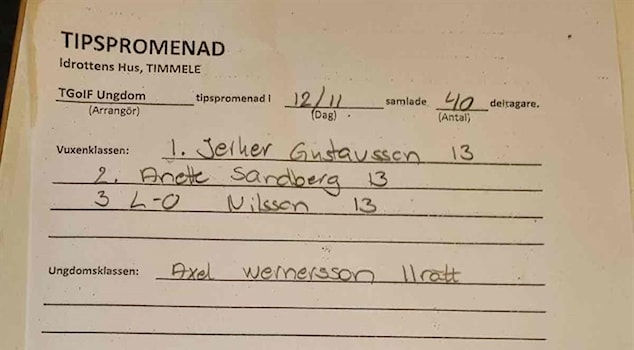 TIPSPROMENAD
Idrottens Hus, TIMMELE
TGoIF Ungdom tipspromenad i 12/11 samlade 40 deltagare.
(Arrangör) (Dag) (Antal)
Vuxenklassen: 1. Jerker Gustavsson 13
2. Anette Sandberg 13
3 L-O Nilsson 13
Ungdomsklassen: Axel Wernersson 11 rätt